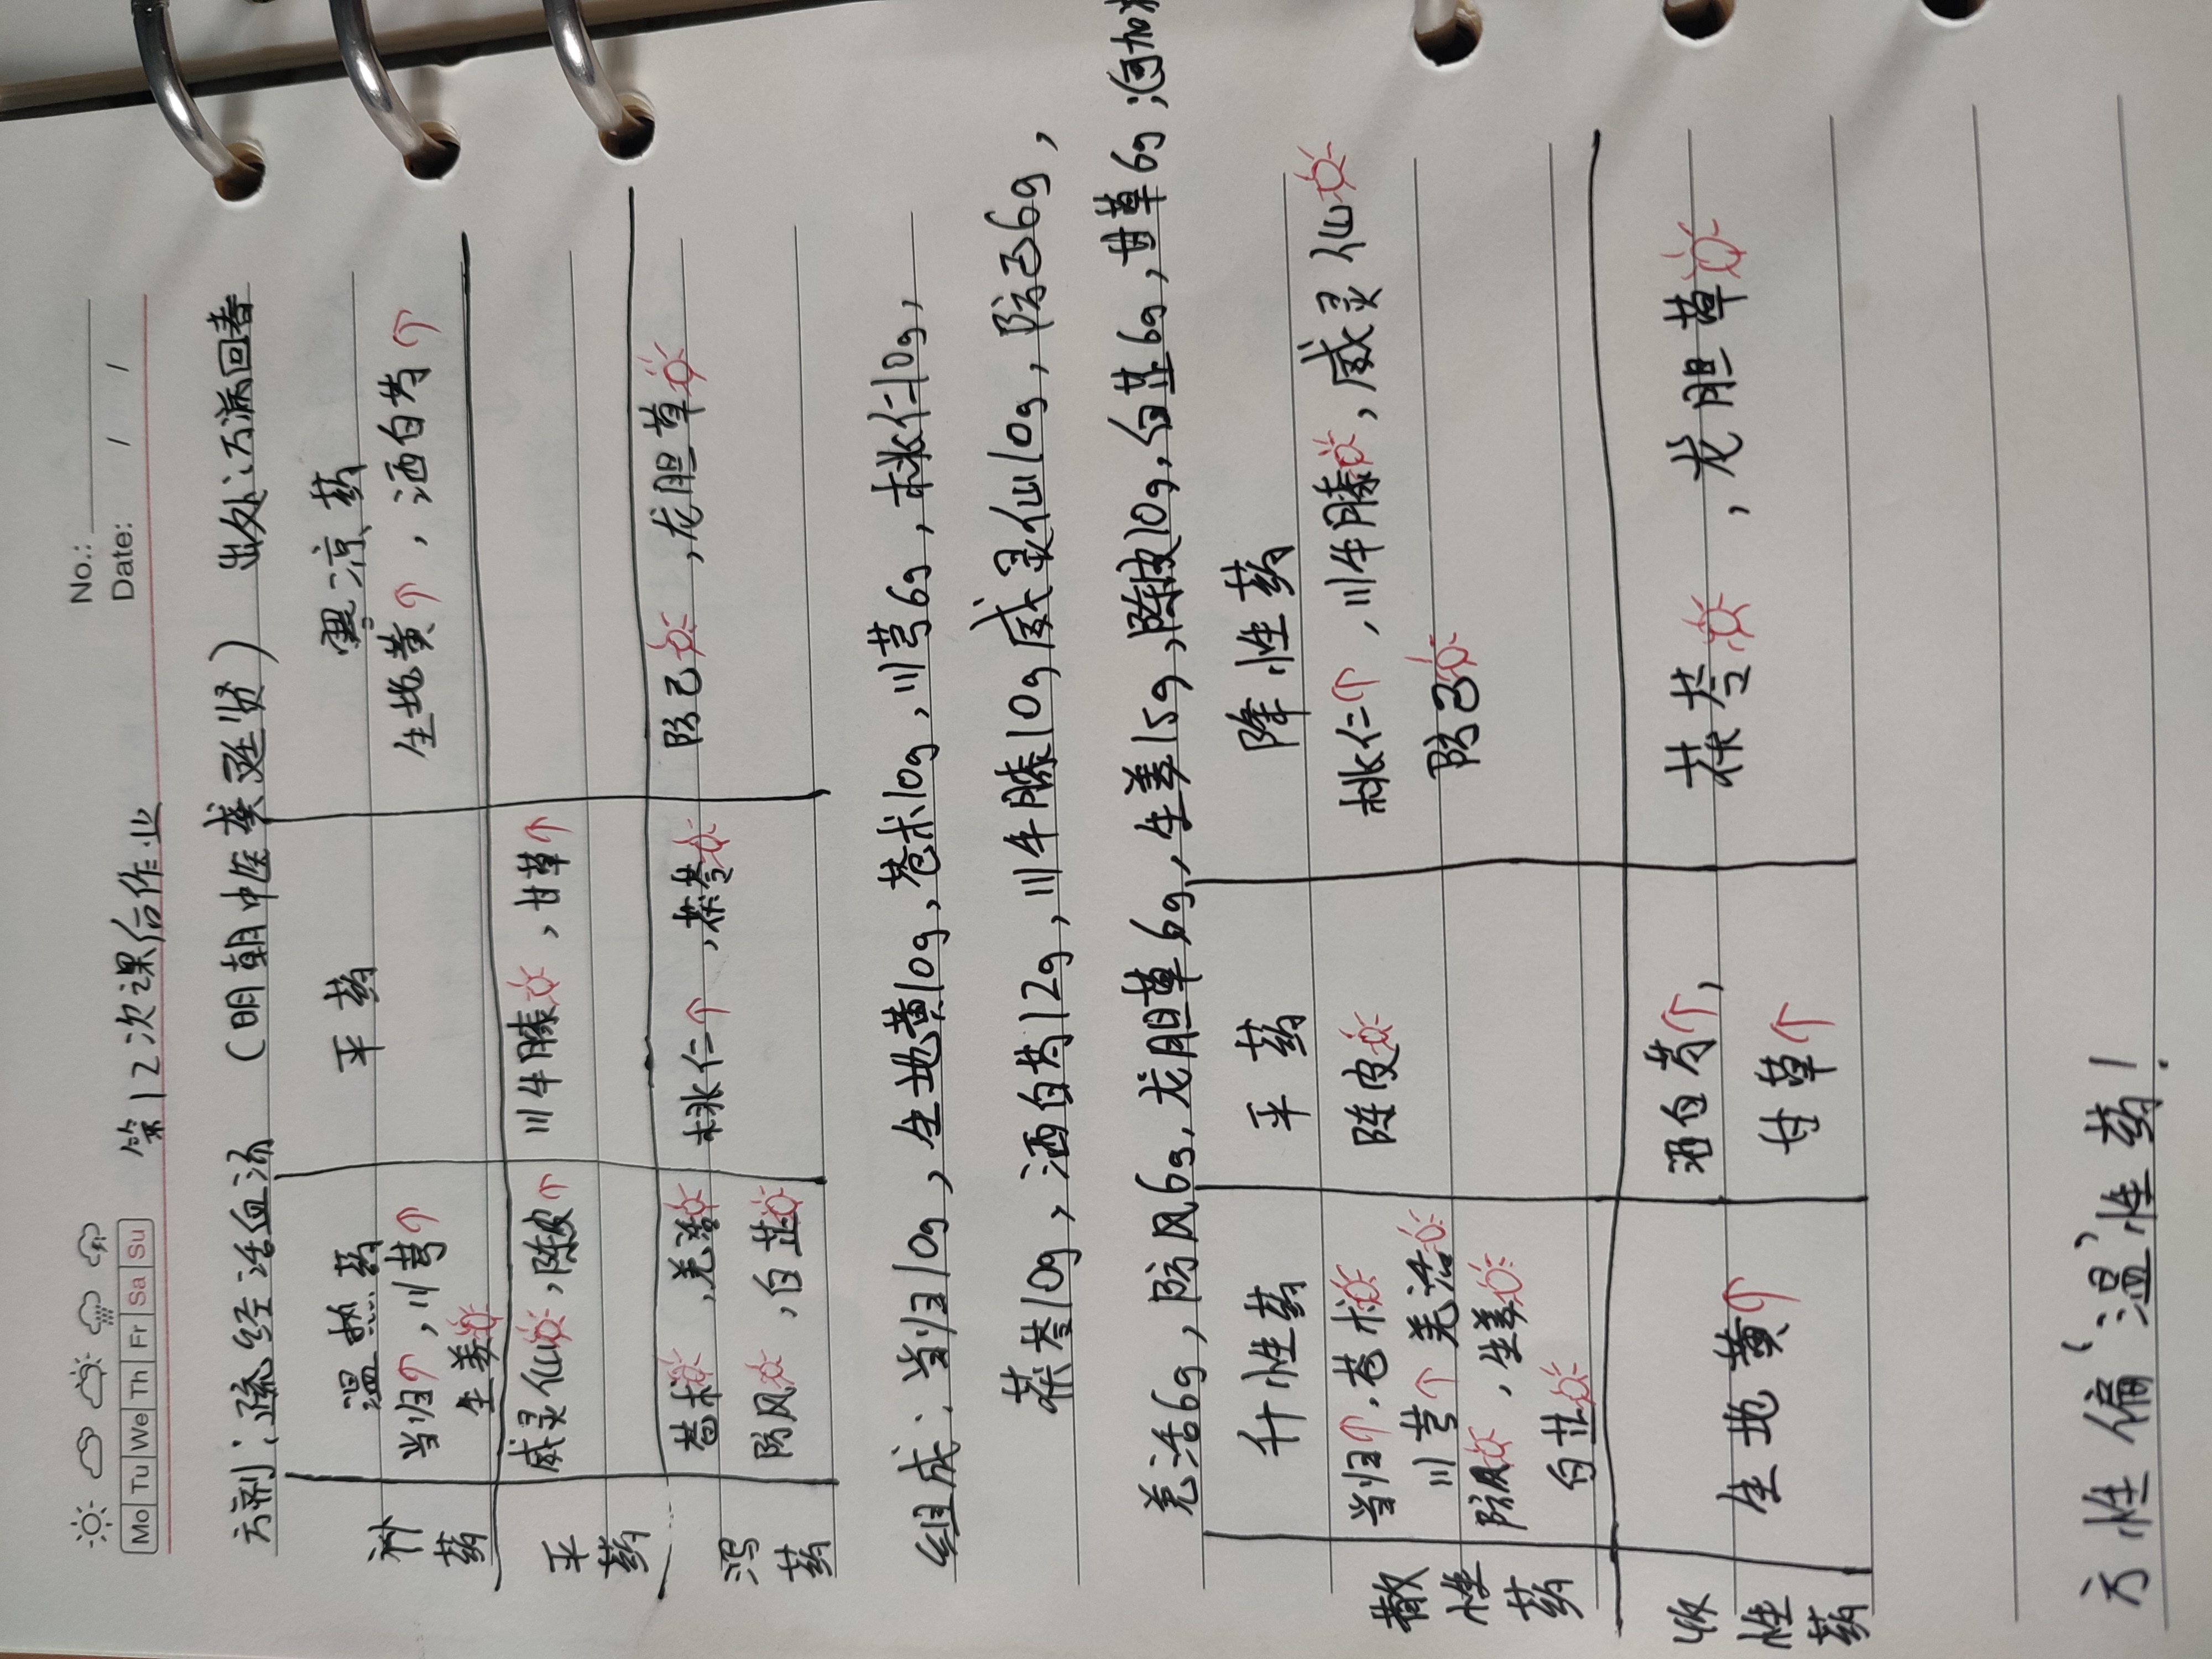 No.:
Date: / /
Mo Tu We Th Fr Sa Su
第12次课后作业
方剂:疏经活血汤 (明朝中医龚廷贤) 出处:万病回春
温热药 平药 寒凉药
补药 当归↑,川芎↑ 生地黄↑,酒白芍↑
生姜
平药 威灵仙,陈皮↑ 川牛膝,甘草↑
泻药 苍术,羌活 桃仁↑,茯苓 防己,龙胆草
防风,白芷
组成:当归10g,生地黄10g,苍术10g,川芎6g,桃仁10g,
茯苓10g,酒白芍12g,川牛膝10g威灵仙10g,防己6g,
羌活6g,防风6g,龙胆草6g,生姜15g,陈皮10g,白芷6g,甘草6g;
升性药 平药 降性药
散性药 当归↑,苍术 陈皮 桃仁↑,川牛膝,威灵仙
川芎↑羌活 防己
防风,生姜
白芷
收性药 生地黄↑ 酒白芍↑, 茯苓,龙胆草
甘草↑
方性偏‘温’性药!